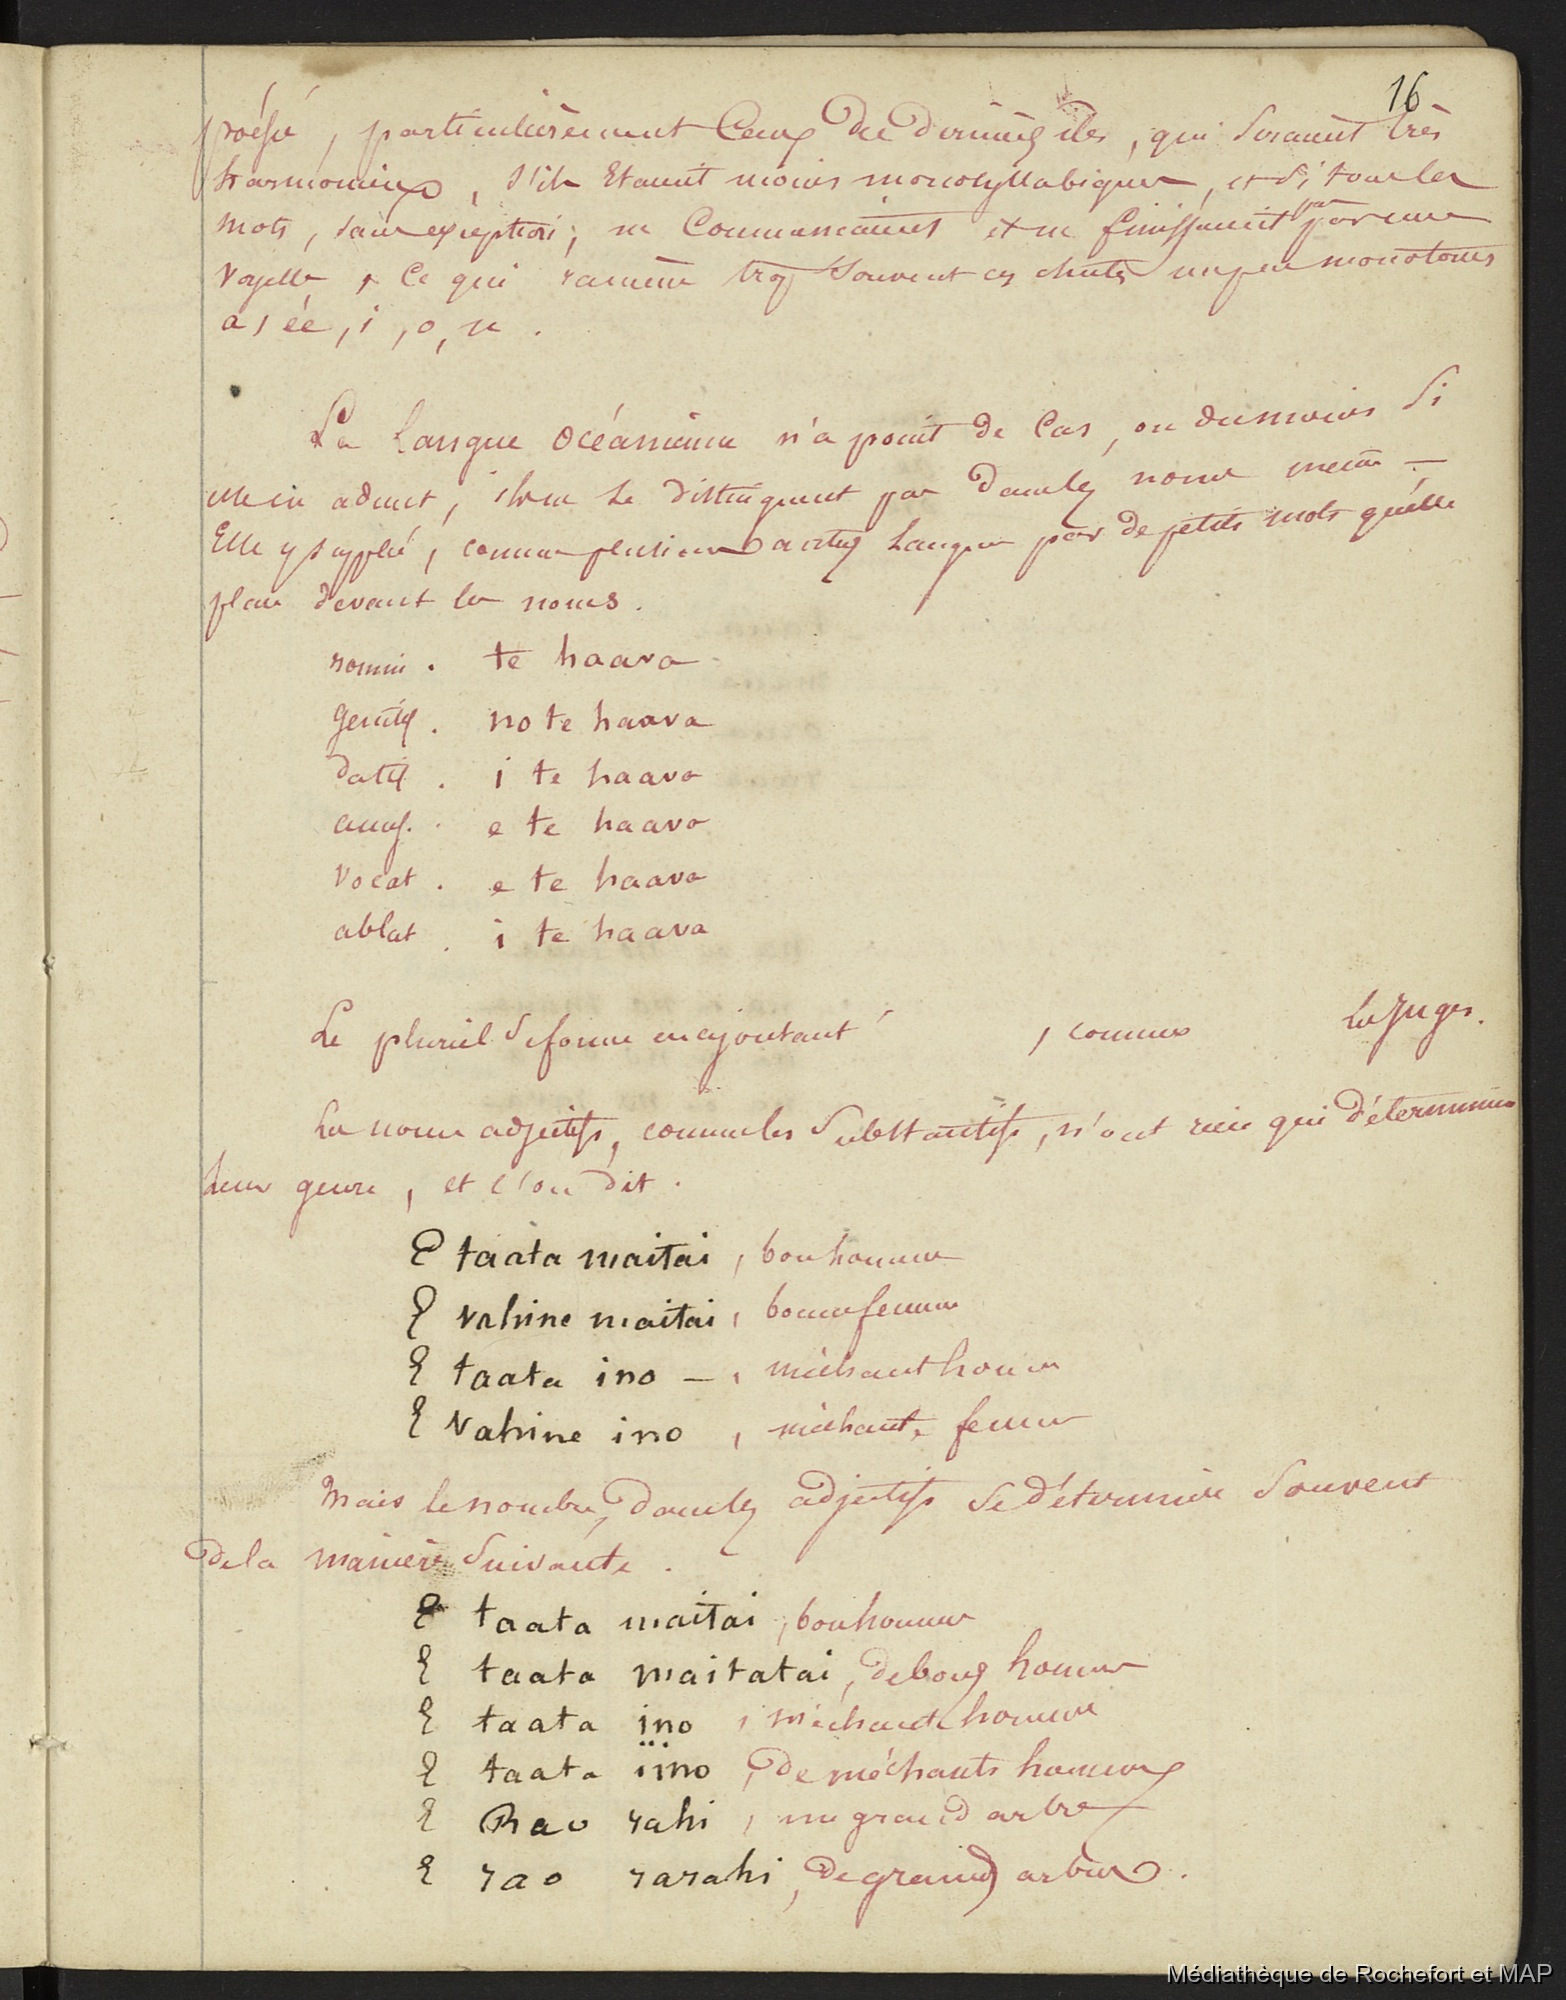 16
poésie, particulièrement Ceux des dernières iles, qui Seraient très
harmonieux, S'ils Etaient moins monosyllabiques, et Si tous les
mots, sans exception, ne Commencaient et ne finissaient par une
voyelle, Ce qui ramène trop Souvent ces chutes un peu monotones
a, éé, i, o, u.
La langue océanienne n'a point de Cas, ou du moins Si
elle en admet, ils ne se distinguent pas dans les noms mème —
Elle y supplée, comme plusieurs autres Langues par de petits mots qu'elle
place devant les noms.
nomin. te haava
genitif. no te haava
datif. i te haava
accus. e te haava
vocat. e te haava
ablat. i te haava
Le pluriel Se forme en ajoutant , comme les Juges.
Les noms adjectifs, comme les Substantifs, n'ont rien qui détermine
leur genre, et l'on dit.
E taata maitai, bon homme
E vahine maitai, bonne femme
E taata ino —, méchant homme
E vahine ino, méchante femme
Mais le nombre, dans les adjectifs Se détermine Souvent
de la manière Suivante.
E taata maitai, bon homme
E taata maitatai, de bons hommes
E taata ino, méchant homme
E taata iino, de méchants hommes
E Rao rahi, un grand arbre
E rao rarahi, de grands arbres.
Médiathèque de Rochefort et MAP